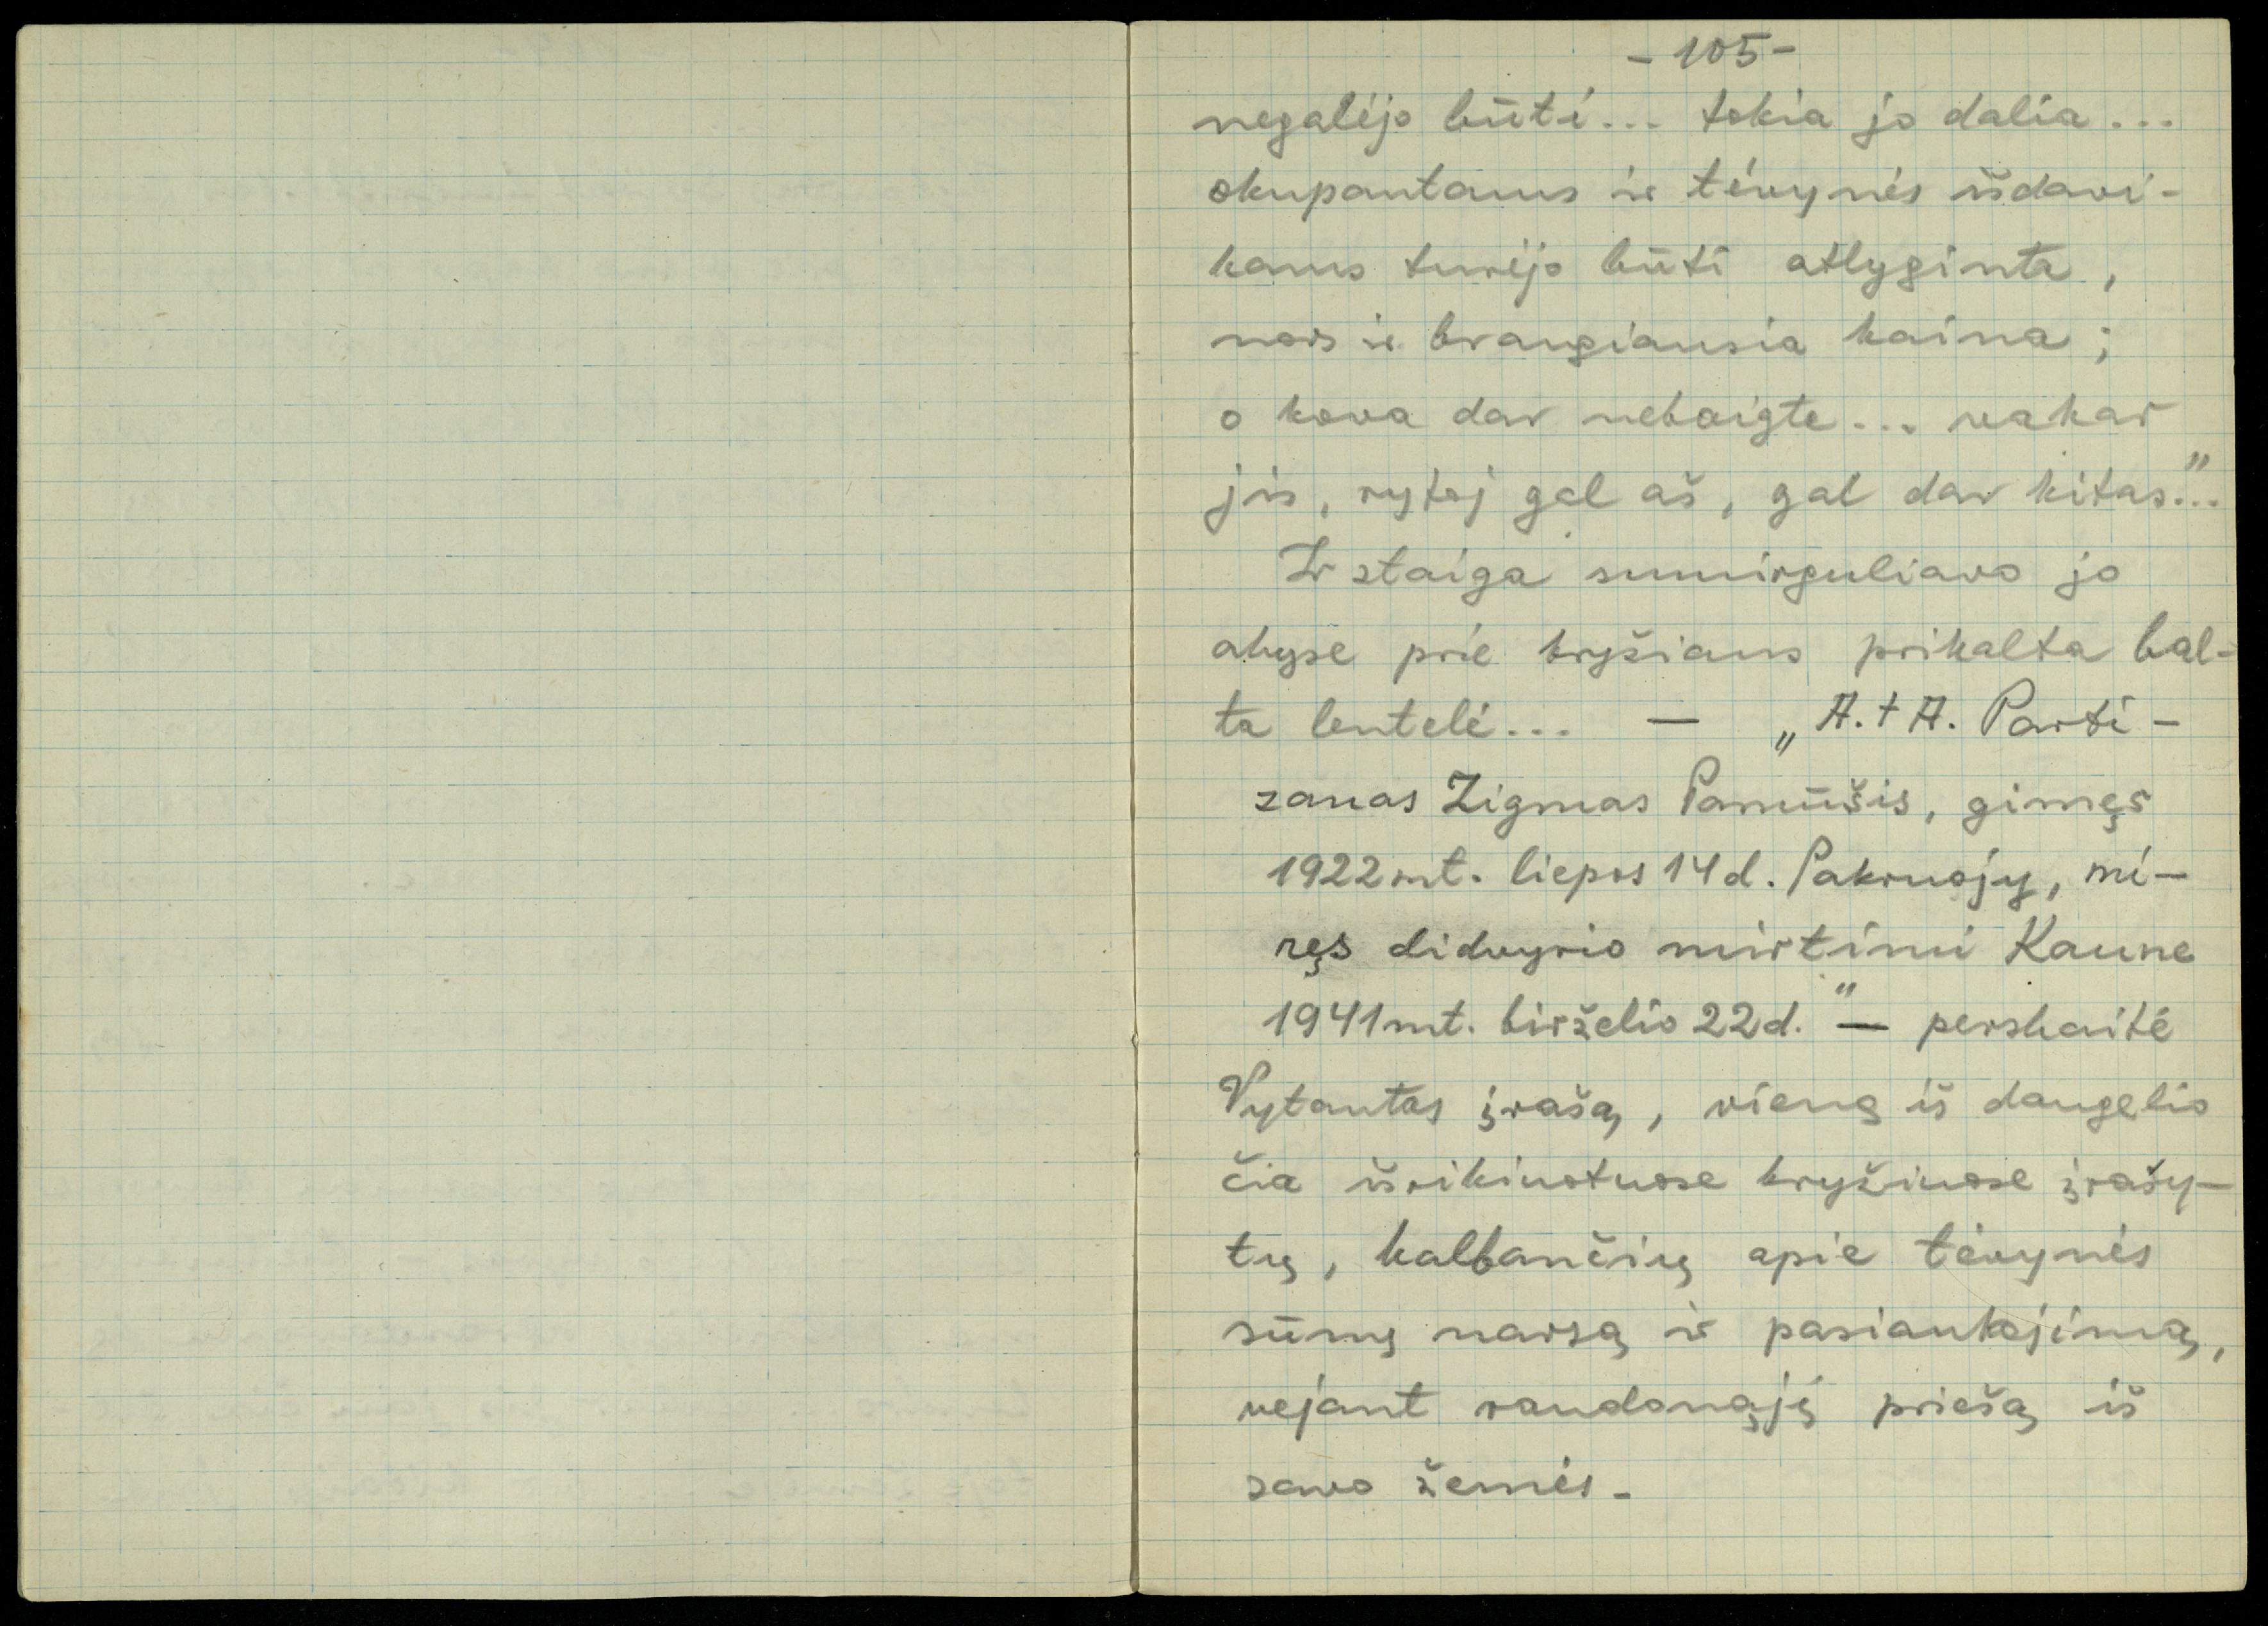 - 105 -
negalėjo būti... tokia jo dalia...
okupantams ir tėvynės išdavi-
kams turėjo būti atlyginta,
nors ir brangiausia kaina;
o kova dar nebaigta... vakar
jis, rytoj gal aš, gal dar kitas..."
Ir staiga sumirguliavo jo
akyse prie kryžiaus prikalta bal-
ta lentelė... — „A. + A. Parti-
zanas Zigmas Pamūšis, gimęs
1922 mt. liepos 14 d. Pakruojy, mi-
ręs didvyrio mirtimi Kaune
1941 mt. birželio 22 d." — perskaitė
Vytautas įrašą, vieną iš daugelio
čia išrikiuotuose kryžiuose įrašy-
tų, kalbančių apie tėvynės
sūnų narsą ir pasiaukojimą,
vejant raudonąjį priešą iš
savo žemės.